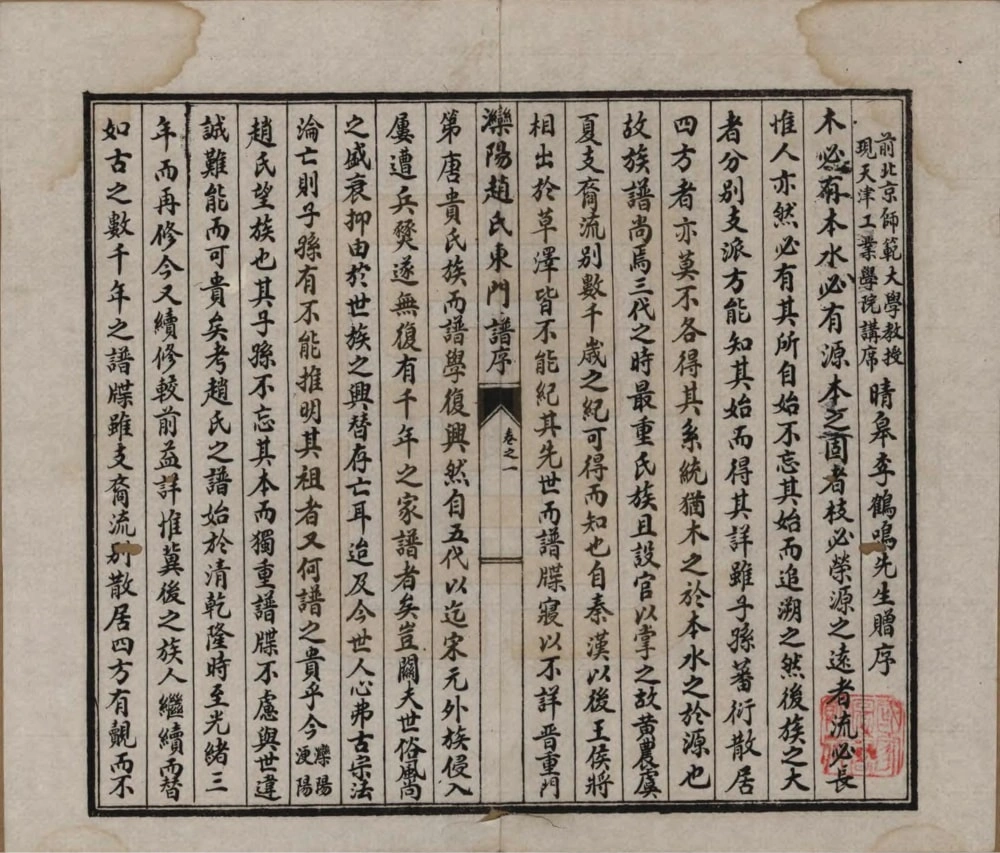 前北京師範大學教授
現天津工業學院講席
晴皋李鶴鳴先生贈序
木必有本水必有源本之固者枝必榮源之遠者流必長
惟人亦然必有其所自始不忘其始而追溯之然後族之大
者分別支派方能知其始而得其詳雖子孫蕃衍散居
四方者亦莫不各得其系統猶木之於本水之於源也
故族譜尚焉三代之時最重氏族且設官以掌之故黄農虞
夏支裔流別數千歲之紀可得而知也自秦漢以後王侯將
相出於草澤皆不能紀其先世而譜牒寖以不詳晋重門
灤陽趙氏東門譜序
卷之一
第唐貴氏族而譜學復興然自五代以迄宋元外族侵入
屢遭兵燹遂無復有千年之家譜者矣豈關夫世俗風尚
之盛衰抑由於世族之興替存亡耳迨及今世人心弗古宗法
淪亡則子孫有不能推明其祖者又何譜之貴乎今灤陽浭陽
趙氏望族也其子孫不忘其本而獨重譜牒不慮與世違
誠難能而可貴矣考趙氏之譜始於清乾隆時至光緒三
年而再修今又續修較前益詳惟冀後之族人繼續而替
如古之數千年之譜牒雖支裔流別散居四方有覿而不